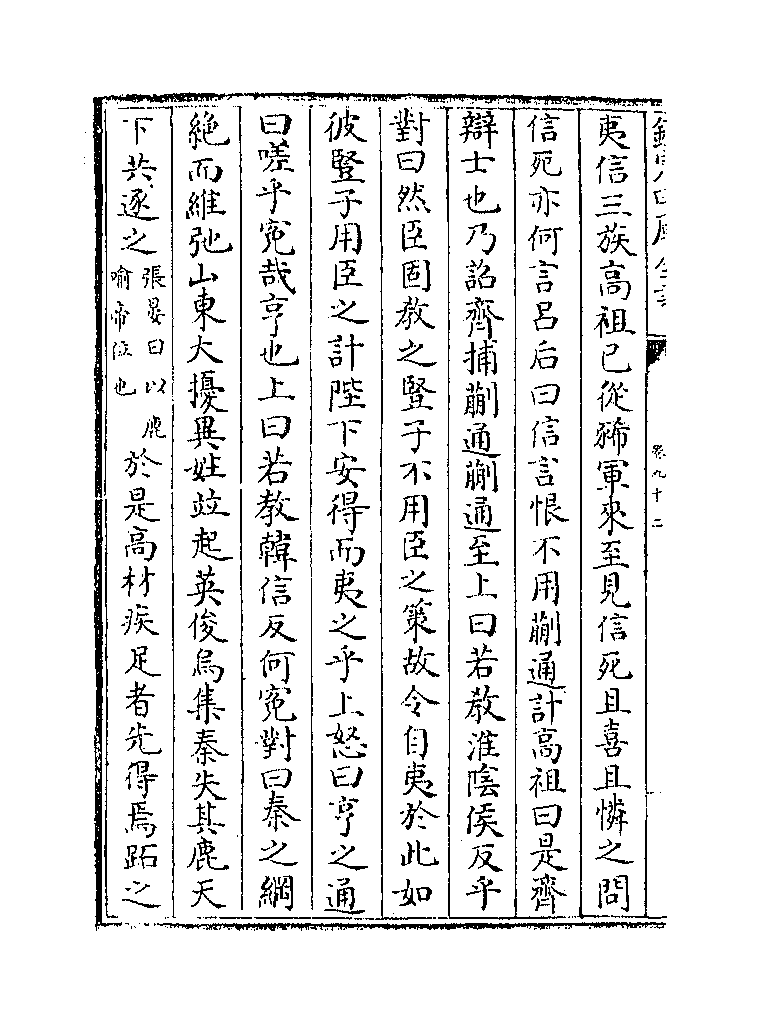 欽定四庫全書
卷九十二
夷信三族髙祖已從豨軍來至見信死且喜且憐之問
信死亦何言吕后曰信言恨不用蒯通計髙祖曰是齊
辯士也乃詔齊捕蒯通蒯通至上曰若教淮隂侯反乎
對曰然臣固教之豎子不用臣之策故令自夷於此如
彼豎子用臣之計陛下安得而夷之乎上怒曰亨之通
曰嗟乎寃哉亨也上曰若教韓信反何寃對曰秦之綱
絶而維弛山東大擾異姓竝起英俊烏集秦失其鹿天
下共逐之張晏曰以鹿喻帝位也於是髙材疾足者先得焉跖之